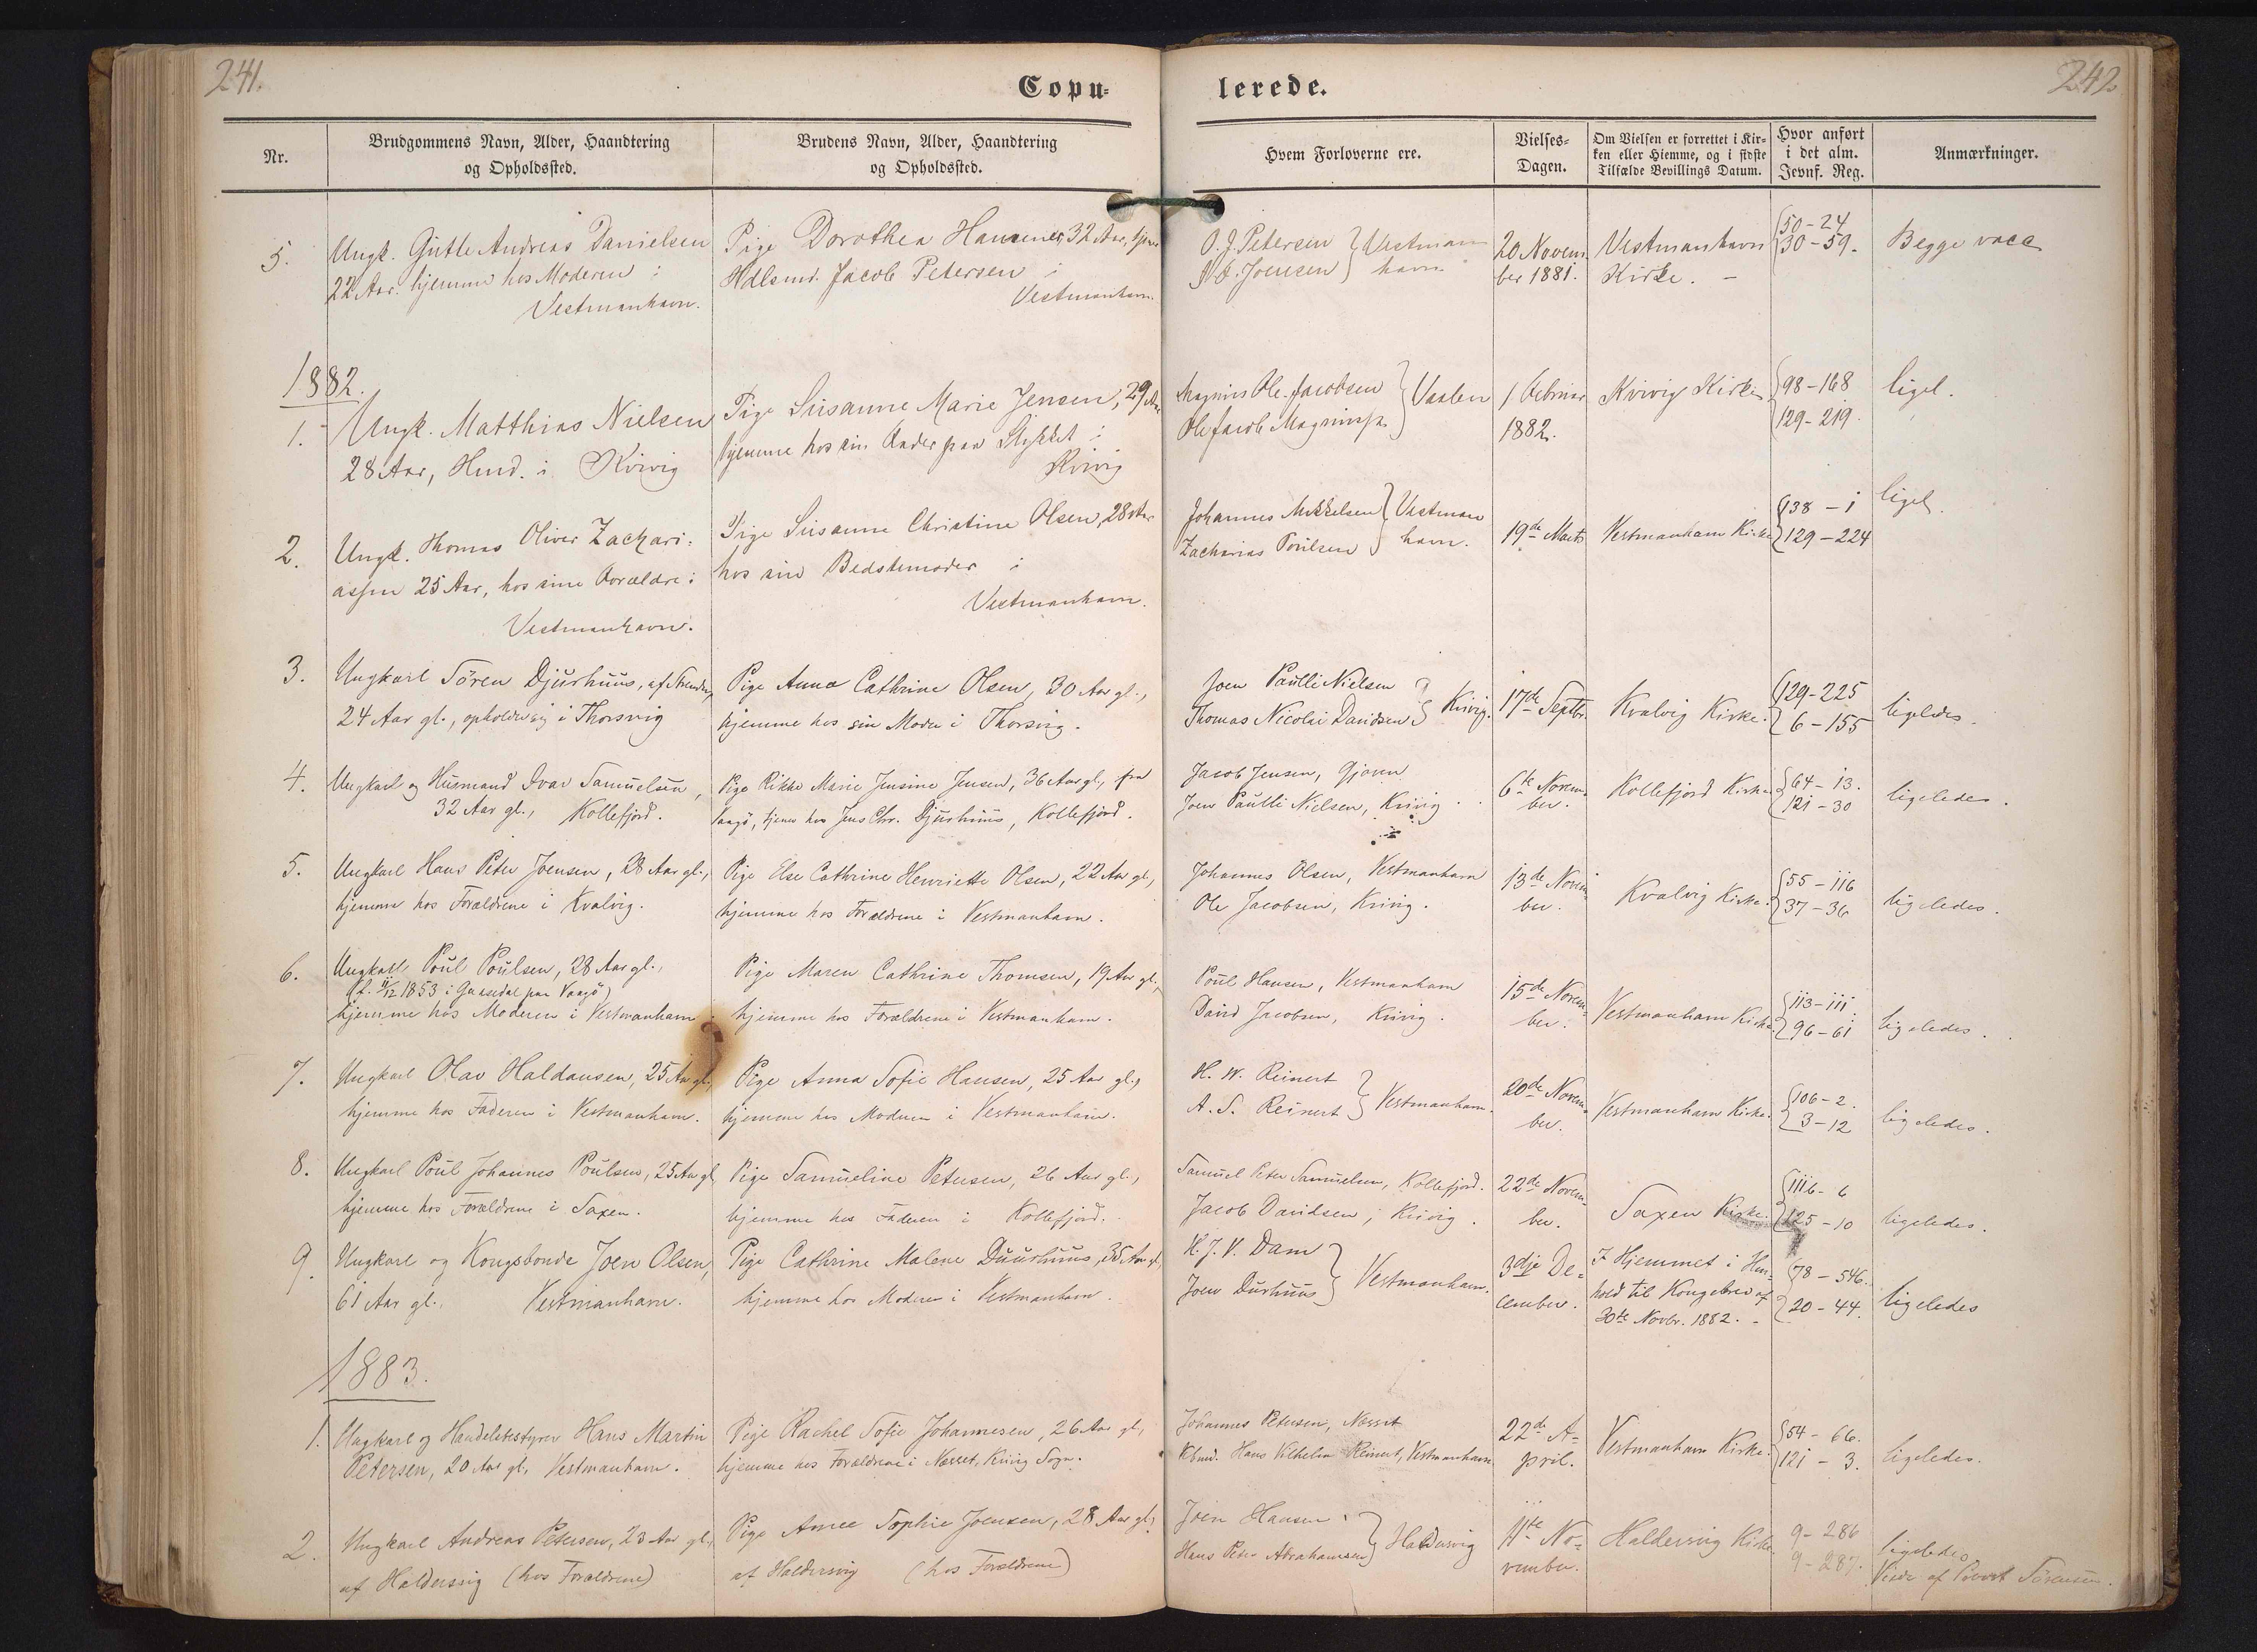 241.
Copu-
lerede.
242
Nr.
Brudgommens Navn, Alder, Haandtering
og Opholdssted.
Brudens Navn, Alder, Haandtering
og Opholdssted.
Hvem Forloverne ere.
Vielses-
Dagen.
Om Vielsen er forrettet i Kir-
ken eller Hiemme, og i sidste
Tilfælde Bevillings Datum.
Hvor anført
i det alm.
Jevnf. Reg.
Anmærkninger.
5.
Ungk. Gutte Andreas Danielsen
22 Aar. hjemme hos Moderen i
Vestmanhavn.
Pige Dorothea 32 Aar,
Hdlsmd. Jacob Petersen i
Vestmanhavn.
O. J. Petersen } Vestman
Joensen } havn
20 Novem
ber 1881.
Vestmanhavn
Kirke. -
50-24
30-59.
Begge vacc
1882.
1.
Ungk. Matthias Nielsen
28 Aar, Hmd. i Kvivig
Pige Susanne Marie Jensen, 29 Aar
hjemme hos sin Fader paa Stykket i
Kvivig
Magnus Ole Jacobsen } Vaalen
Ole Jacob
1 Februar
1882.
Kvivig Kirke
98-168
129-219.
ligel.
2.
Ungk. Thomas Oliver Zachari-
assen 25 Aar, hos sine Forældre i
Vestmanhavn.
Pige Susanne Christine Olsen, 28 Aar
hos sin Bedstemoder i
Vestmanhavn.
Johannes Mikkelsen } Vestman
Zacharias Poulsen } havn.
19de Marts
Vestmanhavn Kirke
138-1
129-224
ligel.
3.
Ungkarl Sören Djurhuus, af
24 Aar gl., opholder sig i Thorsvig
Pige Anna Cathrine Olsen, 30 Aar gl.,
hjemme hos sin Moder i Thorsvig.
Joen Paulli Nielsen
Thomas Nicolai Davidsen } Kvivig.
17de Septbr.
Kvalvig Kirke.
129-225
6-155
ligeledes.
4.
Ungkarl og Husmand Ivar Samuelsen,
32 Aar gl., Kollefjord.
Pige Rikke Marie Jensine Jensen, 36 Aar gl., fra
Vaagö, tjener hos Jens Chr. Djurhuus, Kollefjord.
Jacob Jensen, Gjoven
Joen Paulli Nielsen, Kvivig
6te Novem-
ber.
Kollefjord Kirke
64-13.
121-30
ligeledes.
5.
Ungkarl Hans Peter Joensen, 28 Aar gl.,
hjemme hos Forældrene i Kvalvig.
Pige Else Cathrine Henriette Olsen, 22 Aar gl.,
hjemme hos Forældrene i Vestmanhavn.
Johannes Olsen, Vestmanhavn
Ole Jacobsen, Kvivig.
13de Novem-
ber.
Kvalvig Kirke.
55-116
37-36
ligeledes.
6.
Ungkarl Poul Poulsen, 28 Aar gl.,
(f. 11/12 1853 i Gaasedal paa Vaagö)
hjemme hos Moderen i Vestmanhavn
Pige Maren Cathrine Thomsen, 19 Aar gl.,
hjemme hos Forældrene i Vestmanhavn.
Poul Hansen, Vestmanhavn
David Jacobsen, Kvivig.
15de Novem-
ber.
Vestmanhavn Kirke
113-111.
96-61
ligeledes.
7.
Ungkarl Olav Haldansen, 25 Aar gl.,
hjemme hos Faderen i Vestmanhavn.
Pige Anna Sofie Hansen, 25 Aar gl.,
hjemme hos Moderen i Vestmanhavn.
H. W. Reinert
A. S. Reinert } Vestmanhavn.
20de Novem-
ber.
Vestmanhavn Kirke.
106-2.
3-12
ligeledes.
8.
Ungkarl Poul Johannes Poulsen, 25 Aar gl.
hjemme hos Forældrene i Saxen.
Pige Samueline Petersen, 26 Aar gl.,
hjemme hos Faderen i Kollefjord.
Samuel Peter Samuelsen, Kollefjord.
Jacob Davidsen, Kvivig.
22de Novem-
ber.
Saxen Kirke.
116-6
125-10
ligeledes.
9.
Ungkarl og Kongsbonde Joen Olsen,
61 Aar gl., Vestmanhavn.
Pige Cathrine Malene Duurhuus, 35 Aar gl.,
hjemme hos Moderen i Vestmanhavn.
H. J. V. Dam
Joen Durhuus } Vestmanhavn.
3dje De-
cember.
I Hjemmet i Hen-
hold til Kongebrev af
30te Novbr. 1882. -
78-546.
20-44.
ligeledes
1883.
1.
Ungkarl og Handelsbestyrer Hans Martin
Petersen, 20 Aar gl., Vestmanhavn.
Pige Rachel Sofie Johannesen, 26 Aar gl.,
hjemme hos Forældrene i Nesset, Kvivig Sogn.
Johannes Petersen, Nesset
Hans Vilhelm Reinert, Vestmanhavn
22de A-
pril.
Vestmanhavn Kirke.
54-66.
121-3.
ligeledes.
2.
Ungkarl Andreas Petersen, 23 Aar gl.,
af Haldersvig (hos Forældrene)
Pige Anne Sophie Joensen, 28 Aar gl.,
af Haldersvig (hos Forældrene)
Joen Hansen
Hans Peter Abrahamsen } Haldersvig
11te No-
vember.
Haldersvig Kirke.
9-286
9-287.
ligeledes
Viede af Provst Sörensen.